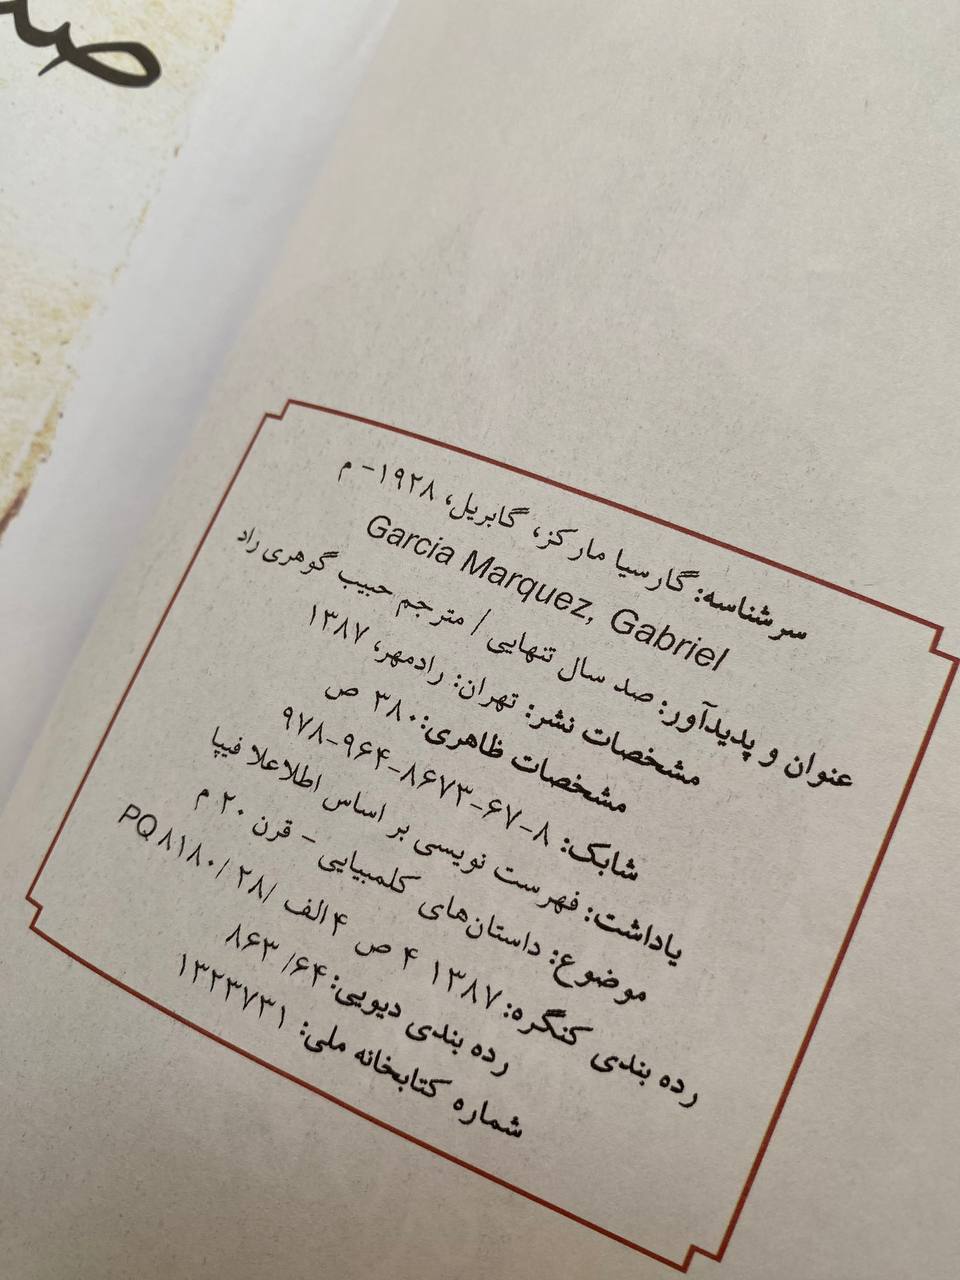 صد
سرشناسه: گارسیا مارکز، گابریل، ۱۹۲۸- م
Garcia Marquez, Gabriel
عنوان و پدیدآور: صد سال تنهایی / مترجم حبیب گوهری راد
مشخصات نشر: تهران: رادمهر، ۱۳۸۷
مشخصات ظاهری: ۳۸۰ ص
شابک: ۸-۶۷-۸۶۷۳-۹۶۴-۹۷۸
یاداشت: فهرست نویسی بر اساس اطلاعلا فیپا
موضوع: داستان‌های کلمبیایی - قرن ۲۰ م
رده بندی کنگره: ۱۳۸۷ ۴ ص ۴ الف /۲۸ /PQ۸۱۸۰
رده بندی دیویی: ۶۴/ ۸۶۳
شماره کتابخانه ملی: ۱۳۲۳۷۳۱